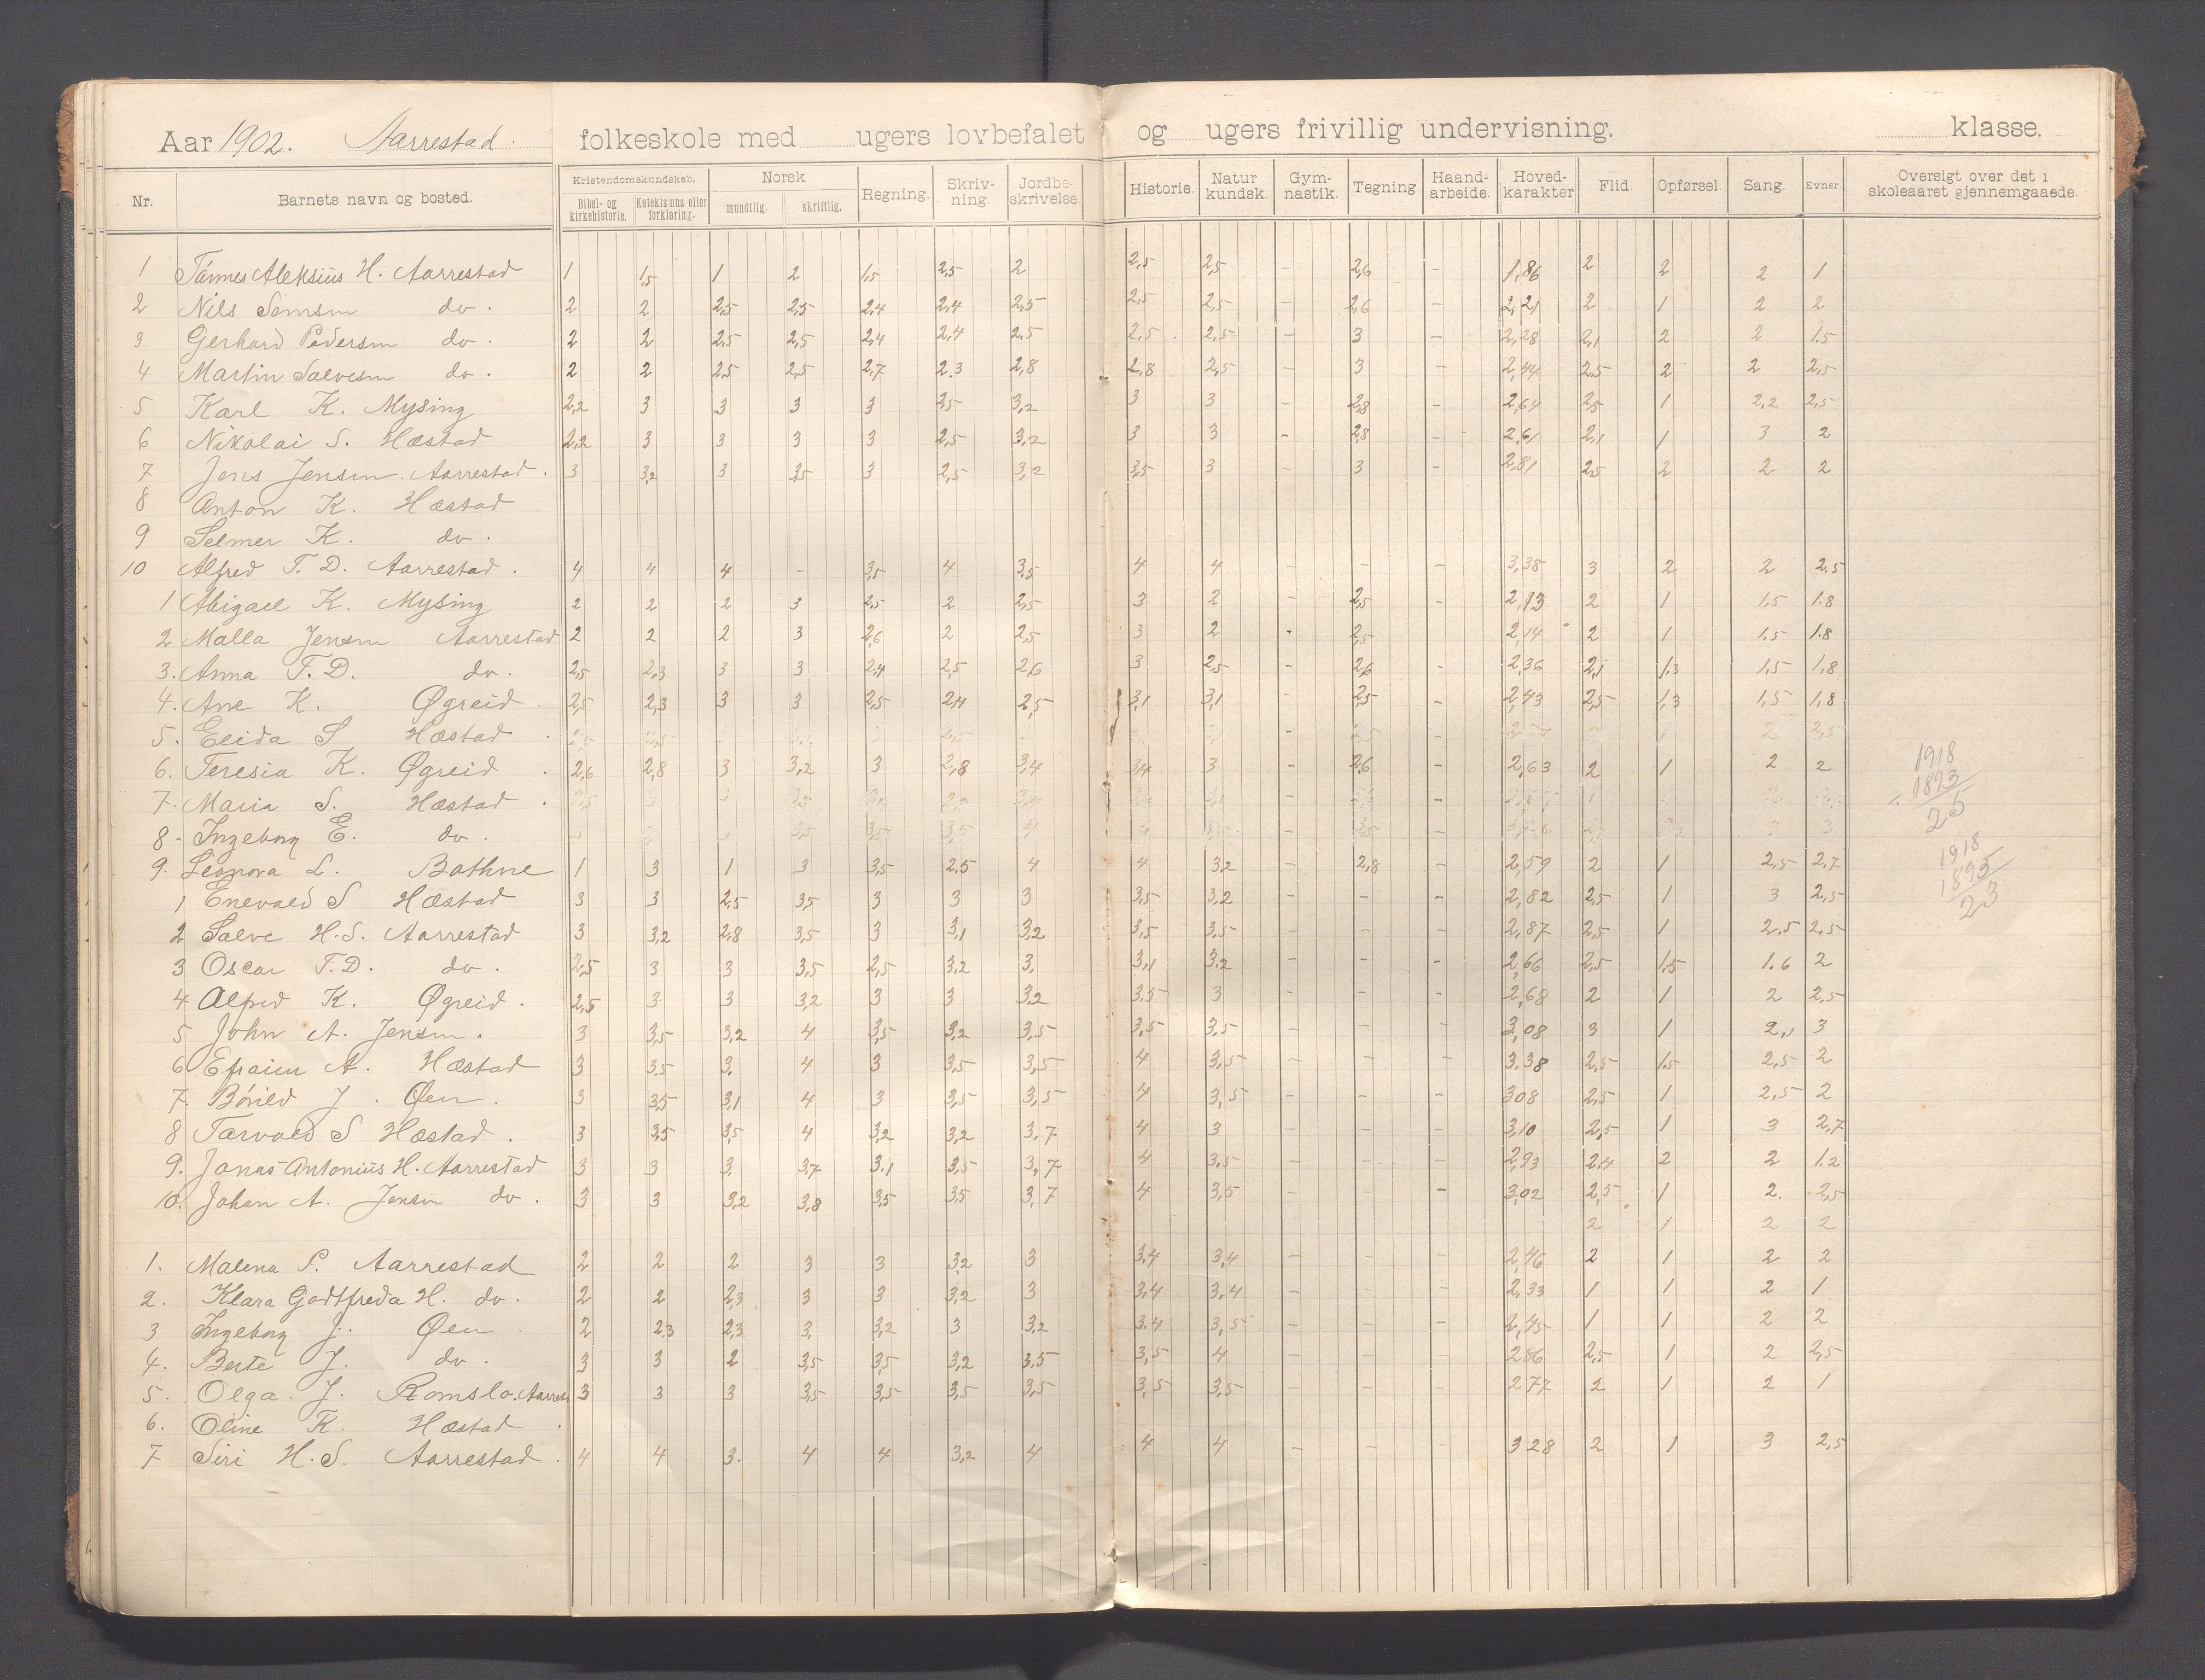 Aar 1902. Aarrestad folkeskole med ugers lovbefalet og ugers frivillig undervisning. klasse.
Nr. Barnets navn og bosted. Kristendomskundskab. Bibel- og kirkehistorie. Katekismus eller forklaring. Norsk mundtlig. skriftlig. Regning. Skriv-ning. Jordbe-skrivelse. Historie. Natur kundsk. Gym-nastik. Tegning Haand-arbeide. Hoved-karakter Flid. Opførsel. Sang. Evner. Oversigt over det i skoleaaret gjennemgaaede.
1 Tønnes Aleksius H. Aarrestad 1 1,5 1 2 1,5 2,5 2 2,5 2,5 - 2,6 - 1,86 2 2 2 1
2 Nils Samsen do. 2 2 2,5 2,5 2,4 2,4 2,5 2,5 2,5 - 2,6 - 2,21 2 1 2 2
3 Gerhard Pedersen do. 2 2 2,5 2,5 2,4 2,4 2,5 2,5 2,5 - 3 - 2,28 2,1 2 2 1.5
4 Martin Salvesen do. 2 2 2,5 2,5 2,7 2.3 2,8 2,8 2,5 - 3 - 2,44 2,5 2 2 2,5
5 Karl K. Mysing 2,2 3 3 3 3 2,5 3,2 3 3 - 2,8 - 2,64 2,5 1 2,2 2,5
6 Nikolai S. Hæstad 2,2 3 3 3 3 2,5 3,2 3 3 - 2,8 - 2,61 2,1 1 3 2
7 Jens Jensen. Aarrestad. 3 3,2 3 3,5 3 2,5 3,2 3,5 3 - 3 - 2,81 2,5 2 2 2
8 Anton K. Hæstad
9 Selmer K. do.
10 Alfred T. D. Aarrestad. 4 4 4 - 3,5 4 3,5 4 4 - - - 3,38 3 2 2 2.5
1 Abigael K. Mysing 2 2 2 3 2,5 2 2,5 3 2 - 2,5 - 2,13 2 1 1,5 1.8
2 Malla Jensen Aarrestad 2 2 2 3 2,6 2 2,5 3 2 - 2,5 2,14 2 1 1.5 1.8
3. Anna T. D. do. 2,5 2,3 3 3 2,4 2,5 2,6 3 2,5 - 2,6 - 2,36 2,1 1,3 1,5 1,8
4. Ane K. Øgreid 2,5 2,3 3 3 2,5 2,4 2,5 3,1 3,1 - 2,5 - 2,43 2,5 1,3 1,5 1,8
5. Elida S Hæstad 2 2,5
6. Teresia K. Øgreid 2,6 2,8 3 3,2 3 2,8 3,4 3,4 3 - 2,6 - 2,63 2 1 2 2
1918
1893
25
7. Maria S. Hæstad
8. Ingeborg E. do.
9. Leonora L. Bathne 1 3 1 3 3,5 2.5 4 4 3,2 - 2,8 - 2,59 2 1 2,5 2,7
1918
1895
23
1 Enevald S Hæstad 3 3 2,5 3,5 3 3 3 3,5 3,2 - - - 2,82 2,5 1 3 2,5
2 Salve H.S. Aarrestad 3 3,2 2,8 3,5 3 3,1 3,2 3,5 3.5 - - - 2,87 2,5 1 2.5 2,5
3 Oscar T.D. do. 2,5 3 3 3,5 2,5 3,2 3. 3,1 3.2 - - - 2,66 2,5 1,5 1.6 2
4 Alfred K. Øgreid. 2,5 3 3 3,2 3 3 3.2 3.5 3 - - - 2,68 2 1 2 2,5
5 John A. Jensen. 3 3,5 3,2 4 3,5 3,2 3,5 3,5 3.5 - - - 3,08 3 1 2,1 3
6 Efraim A. Hæstad 3 3.5 3. 4 3 3,5 3,5 4 3,5 - - - 3.38 2,5 1,5 2,5 2
7. Børild J. Øen. 3 3,5 3,1 4 3 3,5 3,5 4 3,5 - - - 3 08 2,5 1 2,5 2
8 Tarvald S Hæstad. 3 3,5 3,5 4 3,2 3,2 3,7 4 3 - - - 3,10 2,5 1 3 2,7
9. Jonas Antonius H. Aarrestad 3 3 3. 3,7 3.1 3,5 3,7 4 3,5 - - - 2,93 2.4 2 2 1.2
10. Johan A. Jensen do. 3 3 3,2 3,8 3,5 3,5 3,7 4 3,5 - - - 3,02 2,5 1 2. 2,5
2 1 2 2
1. Malena P. Aarrestad 2 2 2 3 3 3,2 3 3.4 3,4 - - - 2,46 2 1 2 2
2. Klara Godtfreda H. do. 2 2 2,3 3 3 3,2 3 3.4 3,4 - - - 2,33 1 1 2 1
3 Ingeborg J. Øen 2 2,3 2,3 3. 3,2 3 3,2 3.4 3,5 - - - 2,45 1 1 2 2
4. Berte J. do. 3 3 2 3,5 3,5 3,2 3.5 3,5 4 - - - 2 86 2,5 1 2 2,5
5. Olga. J. Romslo. Aarres 3 3 3 3,5 3,5 3,5 3,5 3,5 3,5 - - - 2 77 2 1 2 1
6. Oline K. Hæstad
7 Siri H.S. Aarrestad. 4 4 3. 4 4 3,2 4 4 4 - - - 3 28 2 1 3 2,5